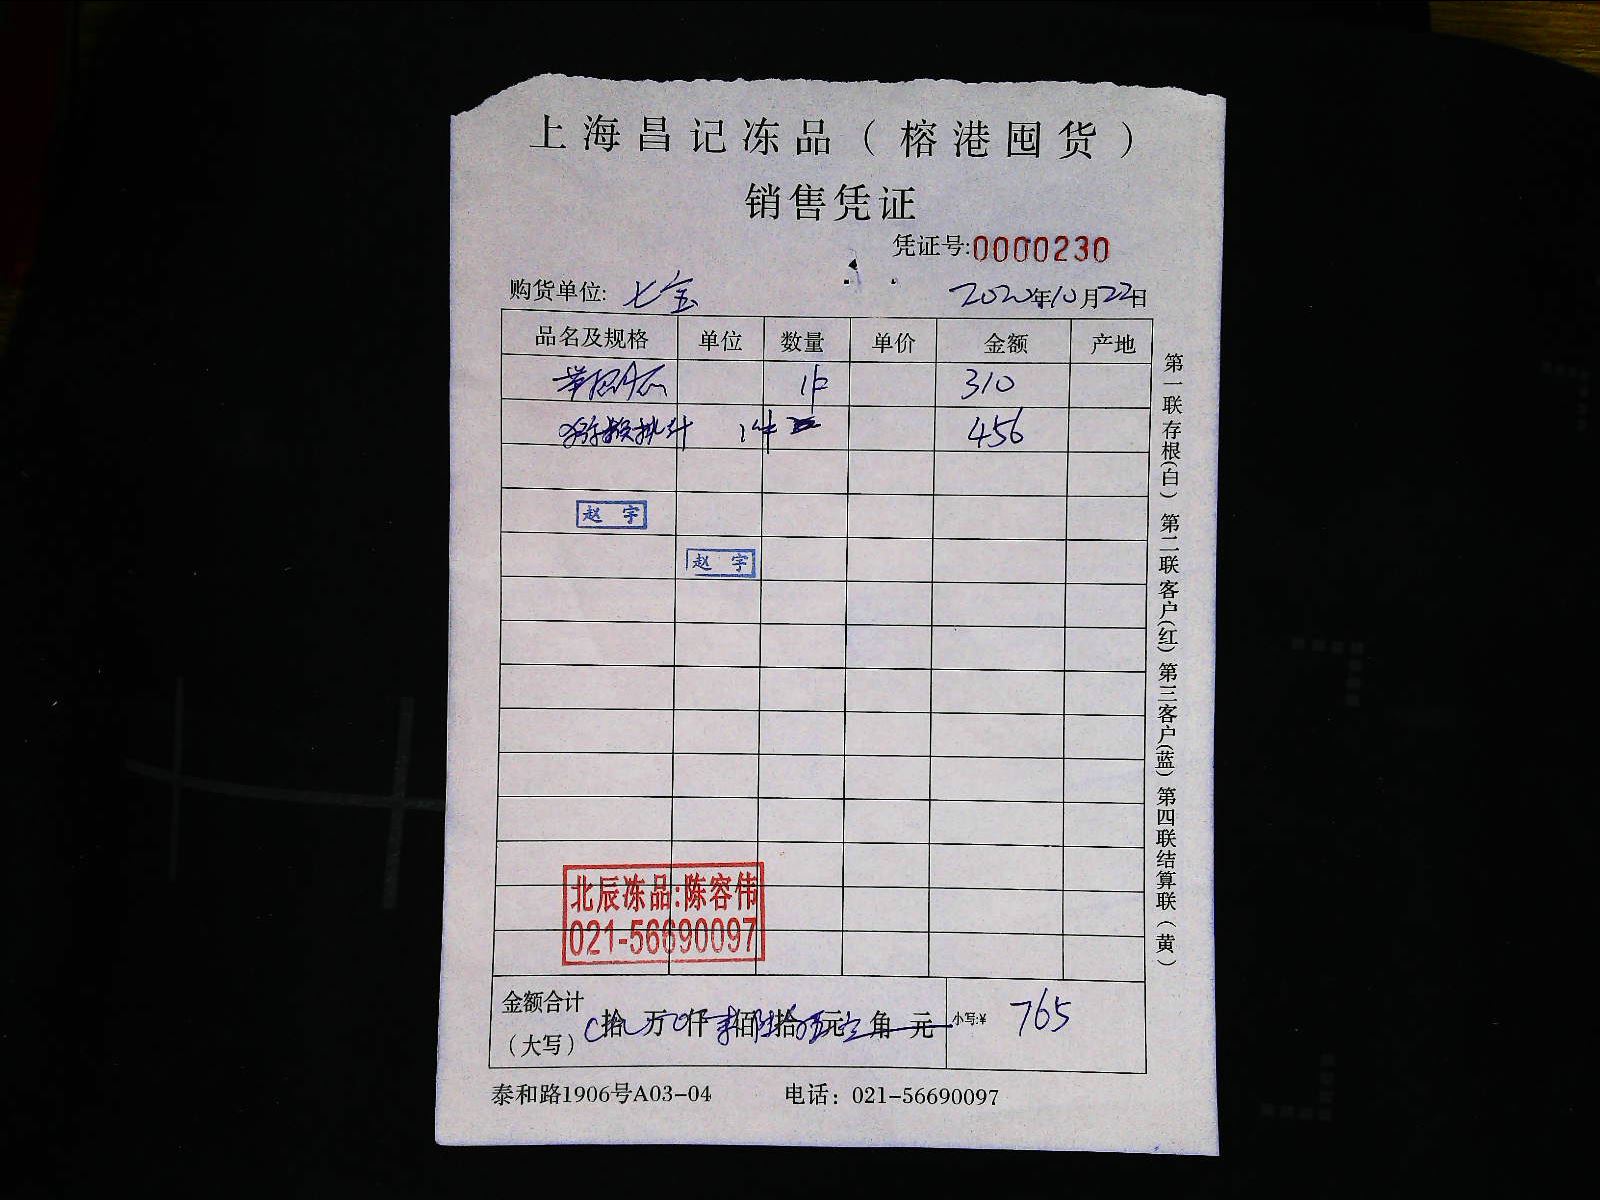 上海昌记冻品（榕港囤货）
销售凭证
凭证号:0000230
购货单位: 七宝 2020年10月22日
品名及规格 单位 数量 单价 金额 产地
1件 310
1件 456
赵宇
赵宇
北辰冻品:陈容伟
021-56690097
金额合计（大写） 拾 万 仟 佰 拾 元 角 元 小写:¥ 765
泰和路1906号A03-04 电话：021-56690097
第一联存根(白) 第二联客户(红) 第三客户(蓝) 第四联结算联(黄)